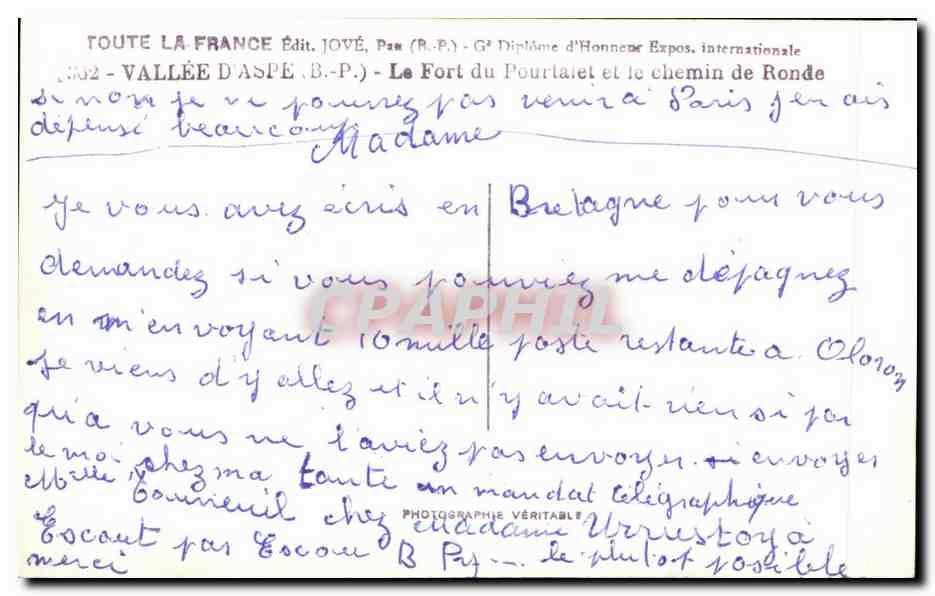 TOUTE LA FRANCE Édit. JOVÉ, Pau (B.-P.) - Gd Diplôme d'Honneur Expos. internationale
302 - VALLÉE D'ASPE (B.-P.) - Le Fort du Pourtalet et le chemin de Ronde
si non je ne pourrez pas venir à Paris j'en ais
dépensé beaucoup
Madame
Je vous avez écris en Bretagne pour vous
demandez si vous pouviez me dépagnez
en m'envoyant 10 mille poste restante a Oloron
Je viens d'y allez et il n'y avait rien si par
qu'a vous ne l'aviez pas envoyer envoyer
le moi chez ma tante un mandat télégraphique
Melle Tourneuil chez Madame Urrustoy à
PHOTOGRAPHIE VÉRITABLE
Escout par Escou B Py le plutot possible
merci
CPAPHIL